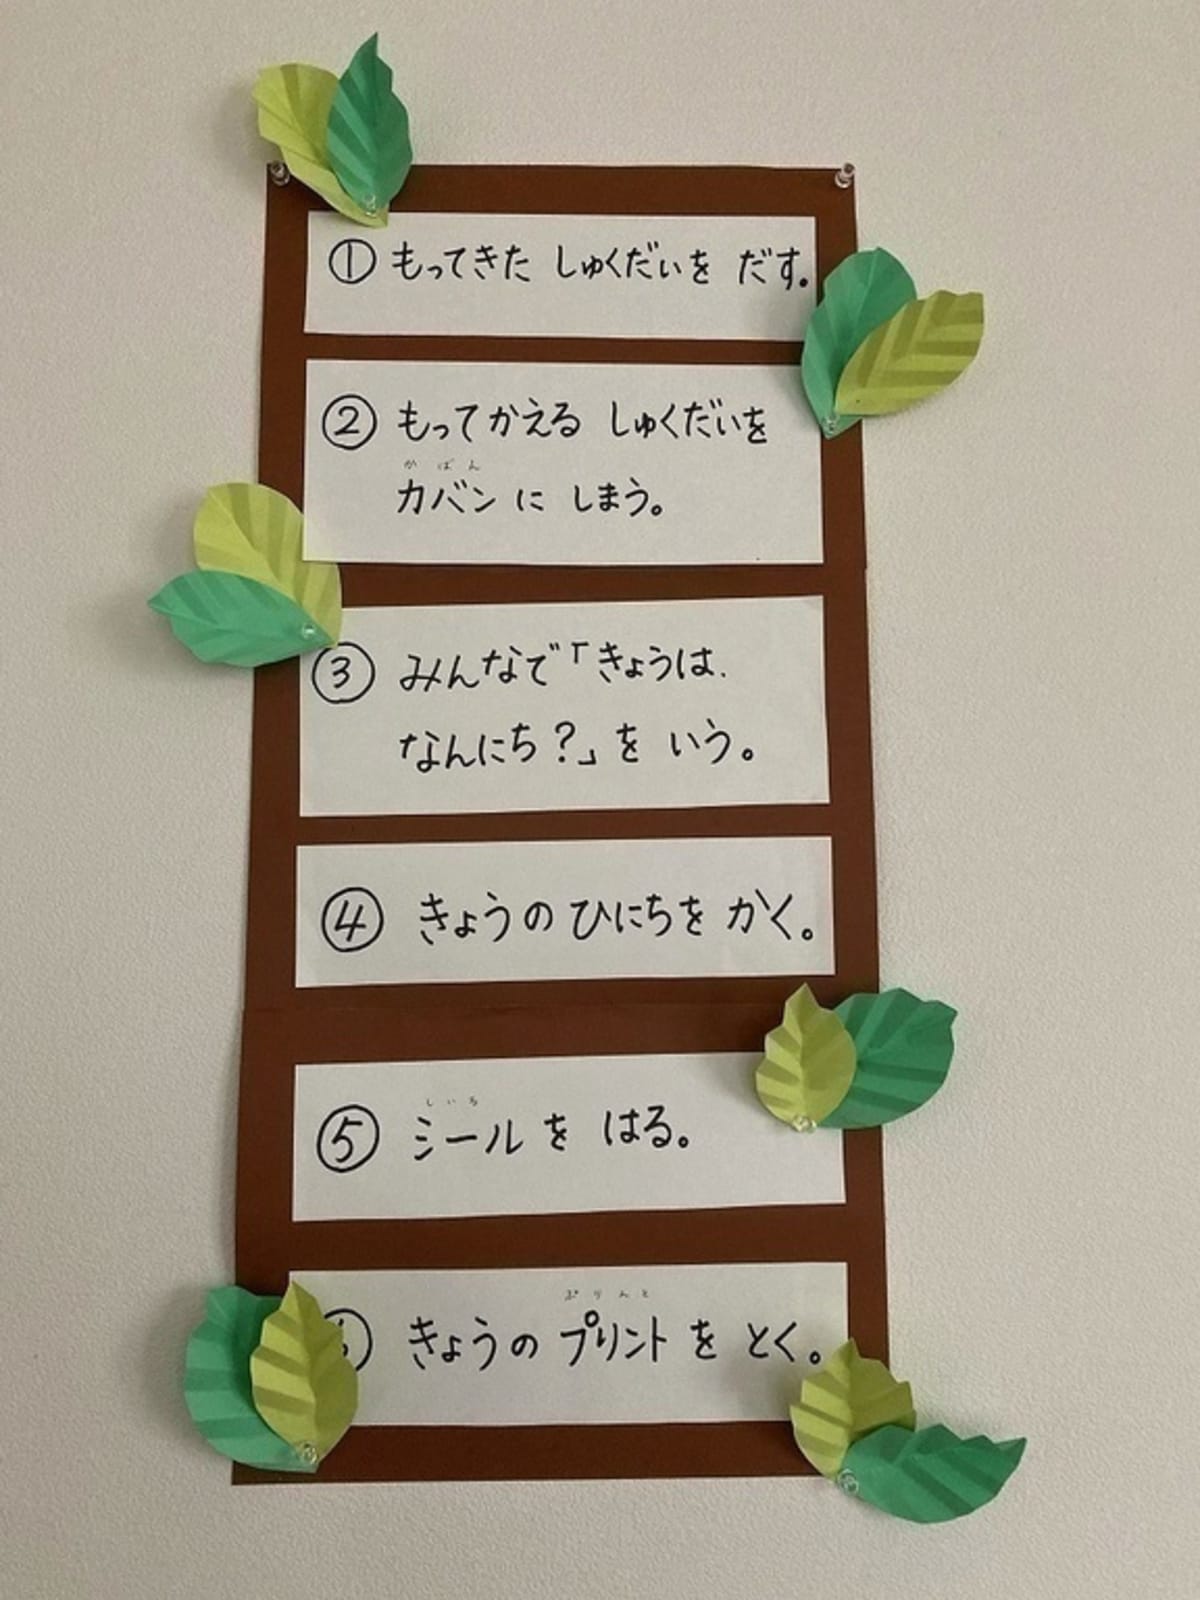 ① もってきた しゅくだいを だす。
② もってかえる しゅくだいを
かばん
カバン に しまう。
③ みんなで「きょうは、
なんにち?」を いう。
④ きょうの ひにちを かく。
しいる
⑤ シール を はる。
ぷりんと
きょうの プリント を とく。